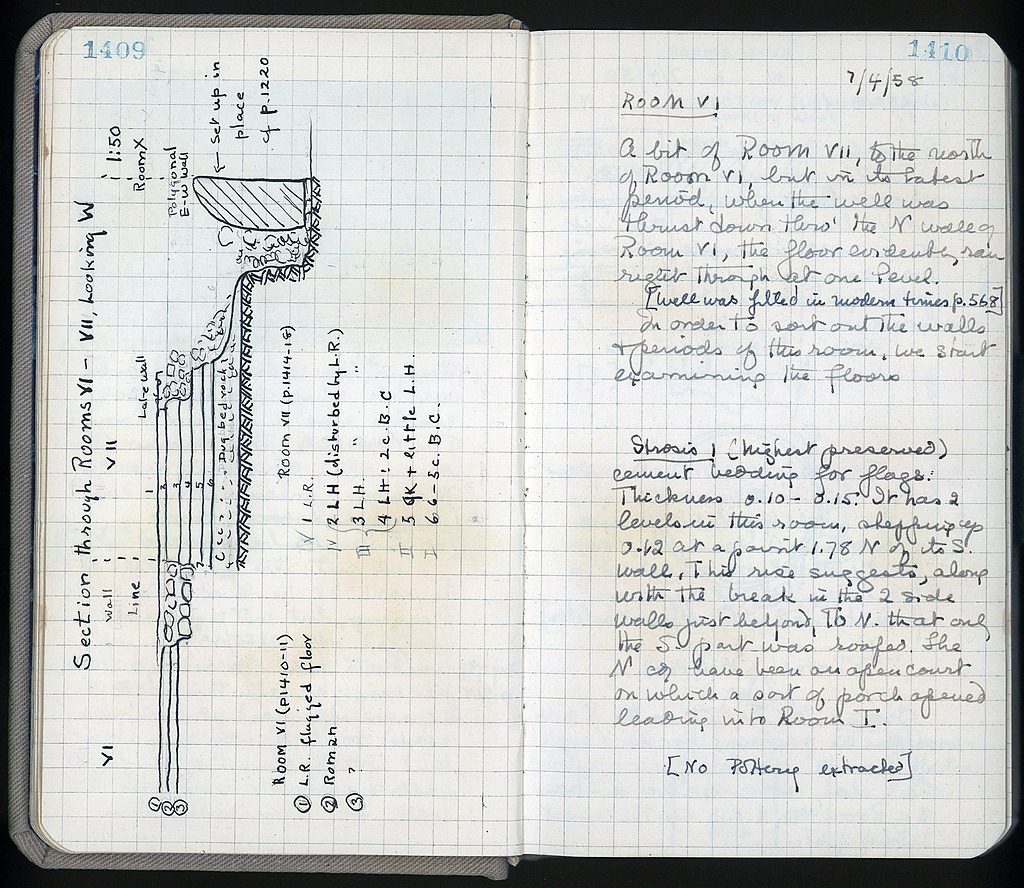 1409
Section through Rooms VI - VII, Looking W
1:50
VI
VII
Room X
Wall
Line
Late wall
Polygonal
E-W wall
← Set up in
place
cf p.1220
1
2
3
4
5
6
7
Dug bedrock
①
②
③
Room VI (p1410-11)
① L.R. flagged floor
② Roman
③ ?
Room VII (p.1414-18)
V 1 L.R.
IV 2 LH (disturbed by L.R.)
3 LH. " "
III 4 LH: 2c. B.C
II 5 GK + little L.H.
I 6 6-5c. B.C.
1410
7/4/58
Room VI
A bit of Room VII, to the north
of Room VI, but in its latest
period, when the well was
thrust down thro' the N wall of
Room VI, the floor evidently ran
right through at one level.
[Well was filled in modern times p.568]
In order to sort out the walls
& periods of this room, we start
examining the floors
Strosis 1 (highest preserved)
cement bedding for flags:
Thickness 0.10 - 0.15. It has 2
levels in this room, stepping up
0.12 at a point 1.78 N of its S.
wall. This rise suggests, along
with the break in the 2 side
walls just beyond, to N. that only
the S. part was roofed. The
N cd have been an open court
on which a sort of porch opened
leading into Room I.
[No Pottery extracted]